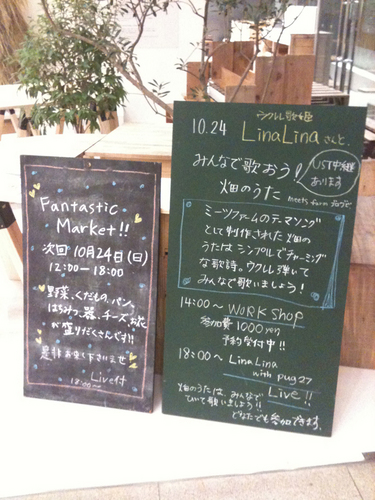 Fantastic
Market!!
次回 10月24日(日)
12:00―18:00
野菜、くだもの、パン。
はちみつ、器、チーズ、お花
が盛りだくさんです!!
是非お越し下さいませ
Live付
18:00~
シクルレ歌姫
10.24 LinaLinaさんと、
みんなで歌おう!
UST中継
あります
畑のうた
meets farm
ミーツファームのテーマソング
として制作された畑の
うたはシンプルでチャーミング
な歌詩。ウクレレ弾いて
みんなで歌いましょう!
14:00~ WORK SHOP
参加費 1000yen
予約受付中!!
18:00~ LinaLina
with pug27
Live!!
畑のうたは、みんなで
ひいて歌いましょう!!
どなたでも参加できます。